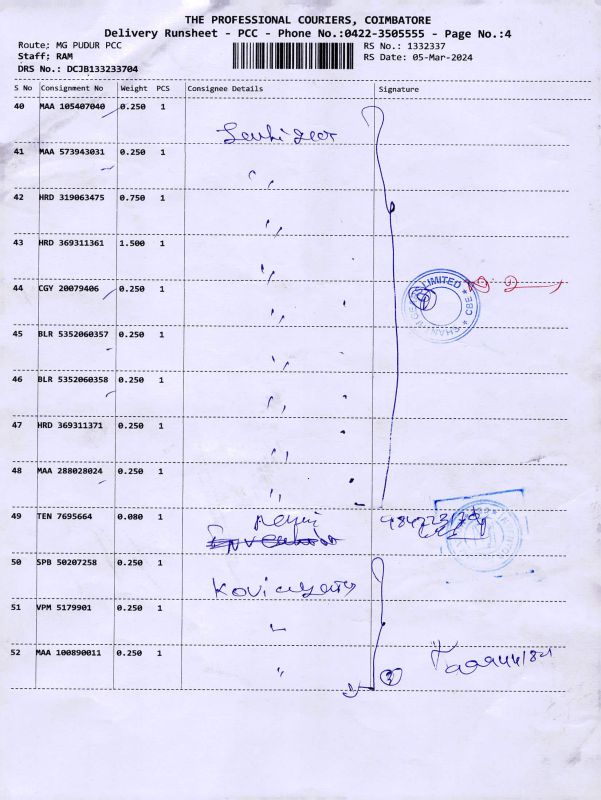 THE PROFESSIONAL COURIERS, COIMBATORE
Delivery Runsheet - PCC - Phone No.:0422-3505555 - Page No.:4
Route; MG PUDUR PCC
RS No.: 1332337
Staff; RAM
RS Date: 05-Mar-2024
DRS No.: DCJB133233704
S No Consignment No Weight PCS Consignee Details Signature
40 MAA 105407040 0.250 1
41 MAA 573943031 0.250 1
42 HRD 319063475 0.750 1
43 HRD 369311361 1.500 1
44 CGY 20079406 0.250 1
LIMITED * CBE *
45 BLR 5352060357 0.250 1
46 BLR 5352060358 0.250 1
47 HRD 369311371 0.250 1
48 MAA 288028024 0.250 1
49 TEN 7695664 0.080 1
50 SPB 50207258 0.250 1
51 VPM 5179901 0.250 1
52 MAA 100890011 0.250 1